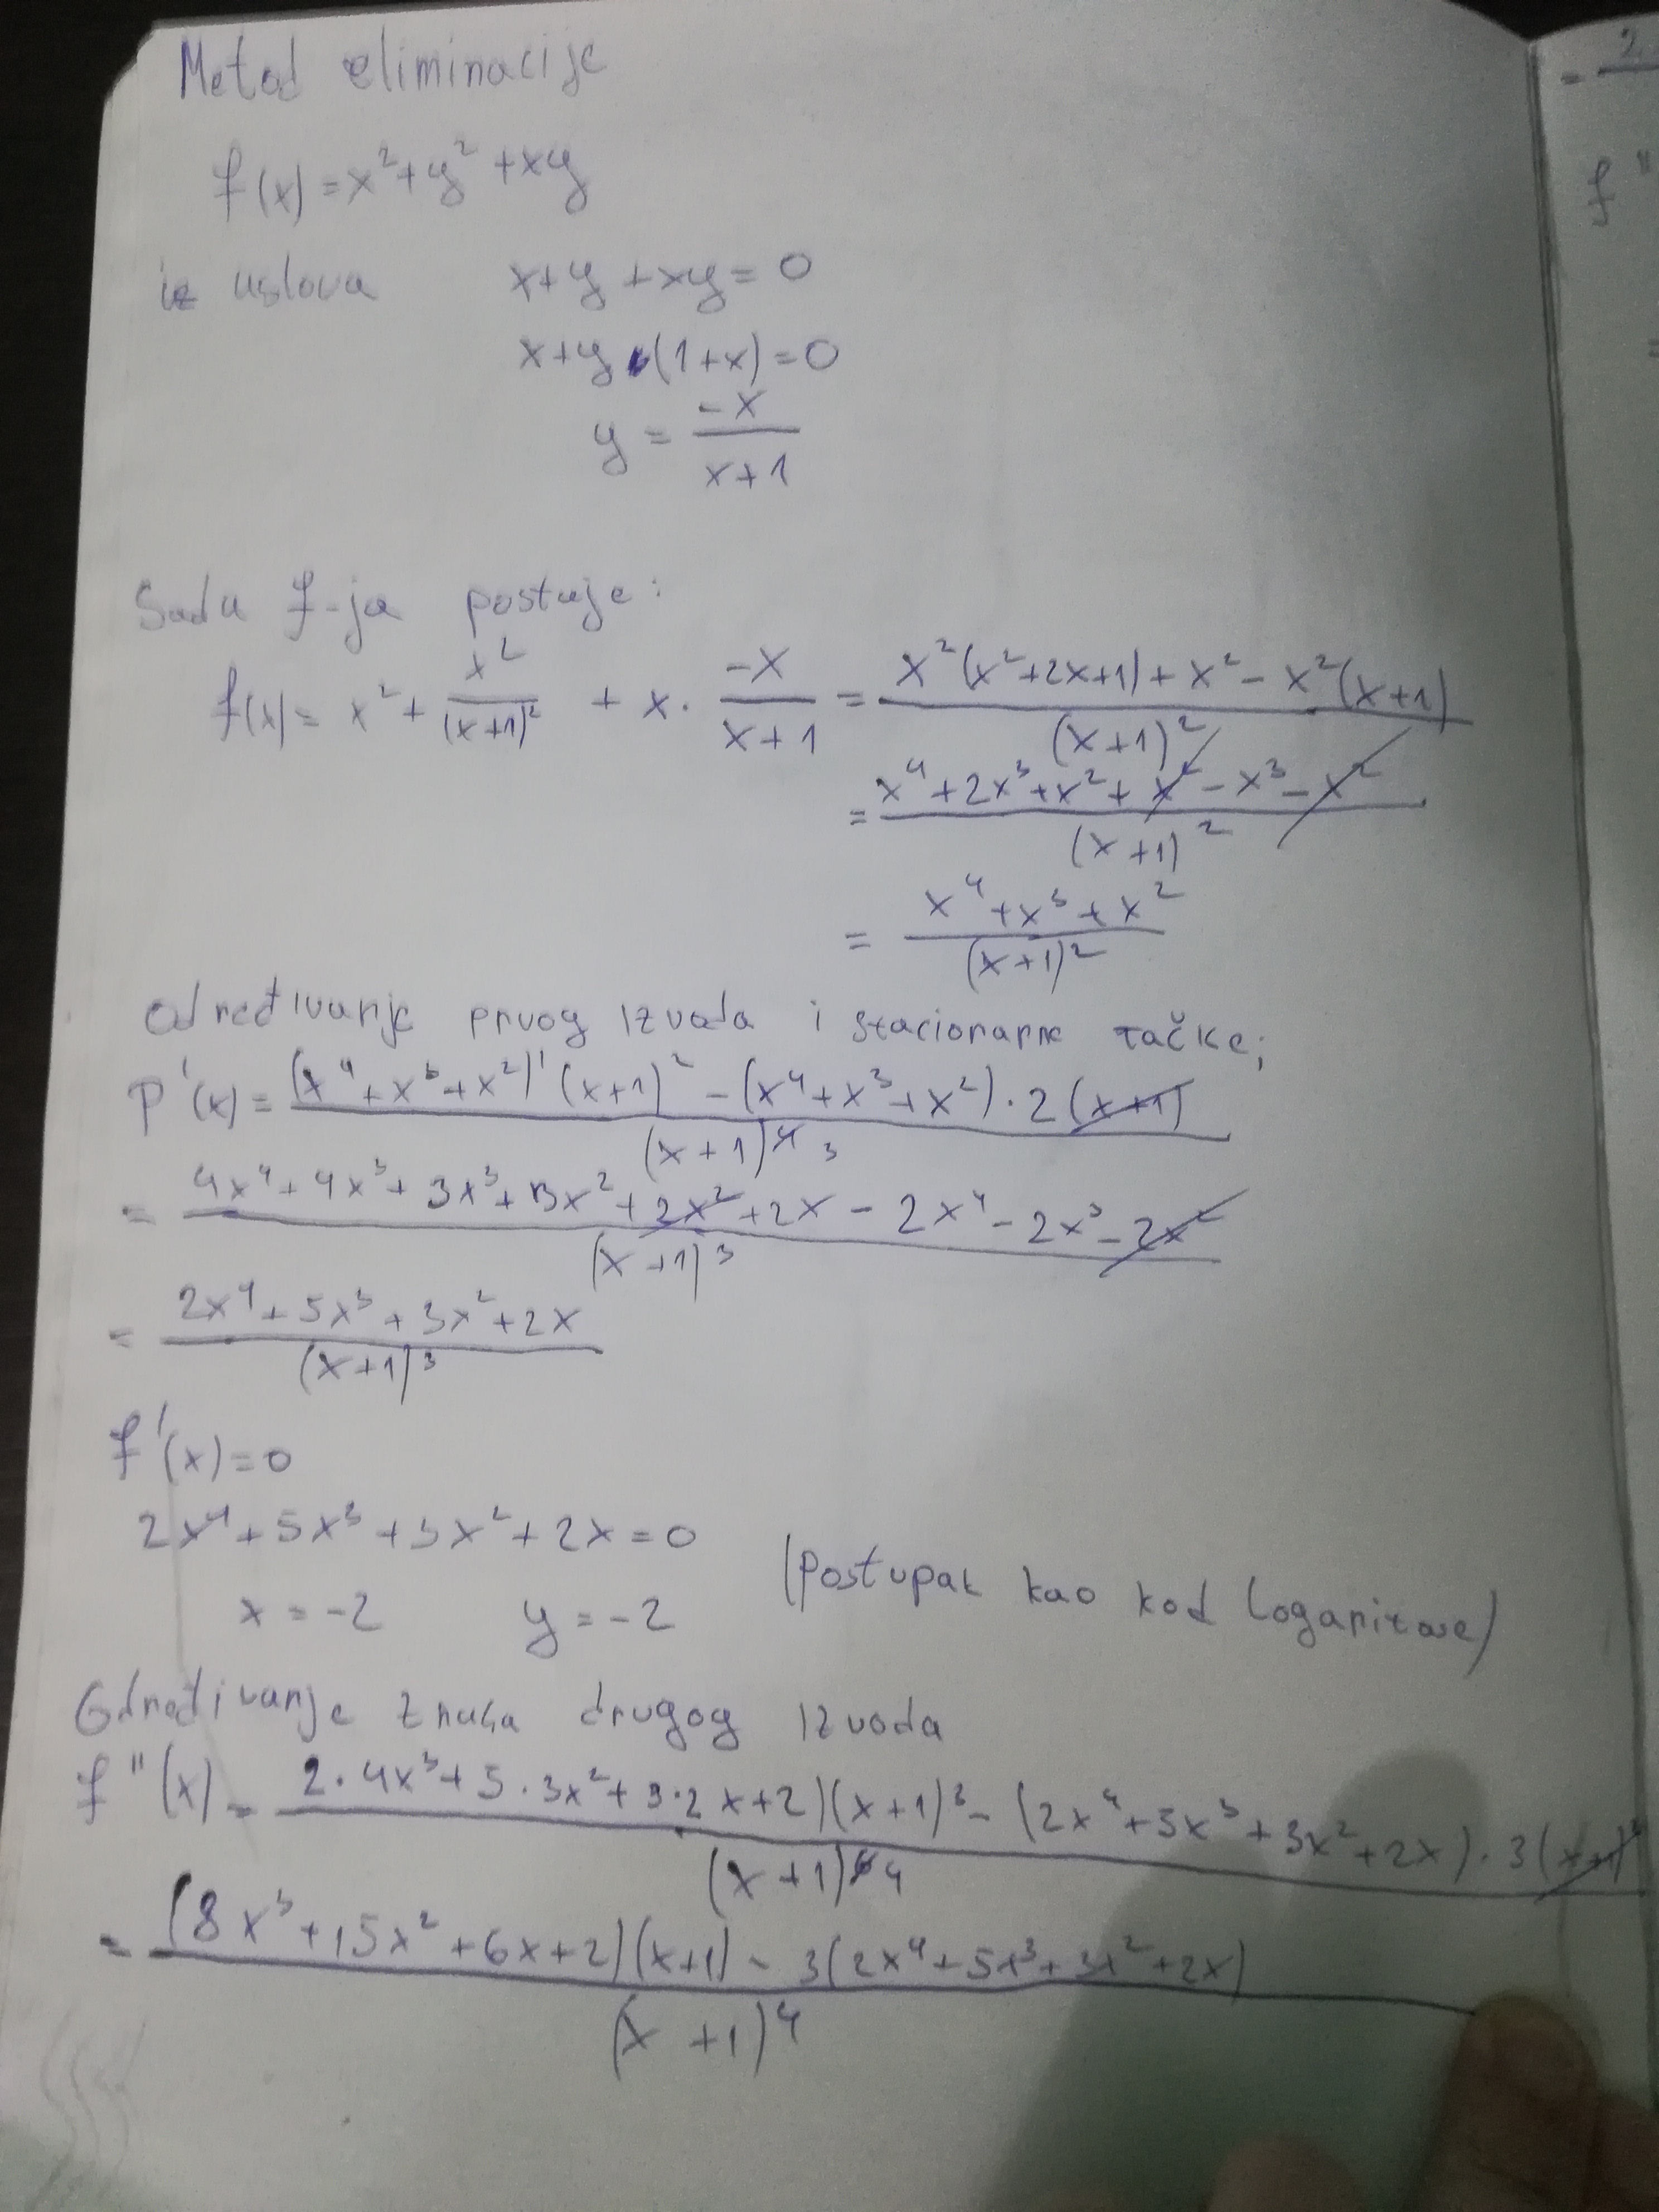 Metod eliminacije
f(x) = x² + y² + xy
iz uslova x + y + xy = 0
x + y · (1 + x) = 0
y = -x / x+1
Sada f-ja postaje:
f(x) = x² + x² / (x+1)² + x · -x / x+1 = x²(x² + 2x + 1) + x² - x²(x+1) / (x+1)²
= x⁴ + 2x³ + x² + x² - x³ - x² / (x+1)²
= x⁴ + x³ + x² / (x+1)²
Određivanje prvog izvoda i stacionarne tačke;
f'(x) = (x⁴ + x³ + x²)' (x+1)² - (x⁴ + x³ + x²) · 2(x+1) / (x+1)⁴ 3
= 4x⁴ + 4x³ + 3x³ + 3x² + 2x² + 2x - 2x⁴ - 2x³ - 2x² / (x+1)³
= 2x⁴ + 5x³ + 3x² + 2x / (x+1)³
f'(x) = 0
2x⁴ + 5x³ + 3x² + 2x = 0
x = -2 y = -2 (Postupak kao kod )
Određivanje znaka drugog izvoda
f''(x) = 2·4x³ + 5·3x² + 3·2x + 2)(x+1)³ - (2x⁴ + 5x³ + 3x² + 2x) · 3(x+1)² / (x+1)⁶ 4
= (8x³ + 15x² + 6x + 2)(x+1) - 3(2x⁴ + 5x³ + 3x² + 2x) / (x+1)⁴
2
=
f''
=